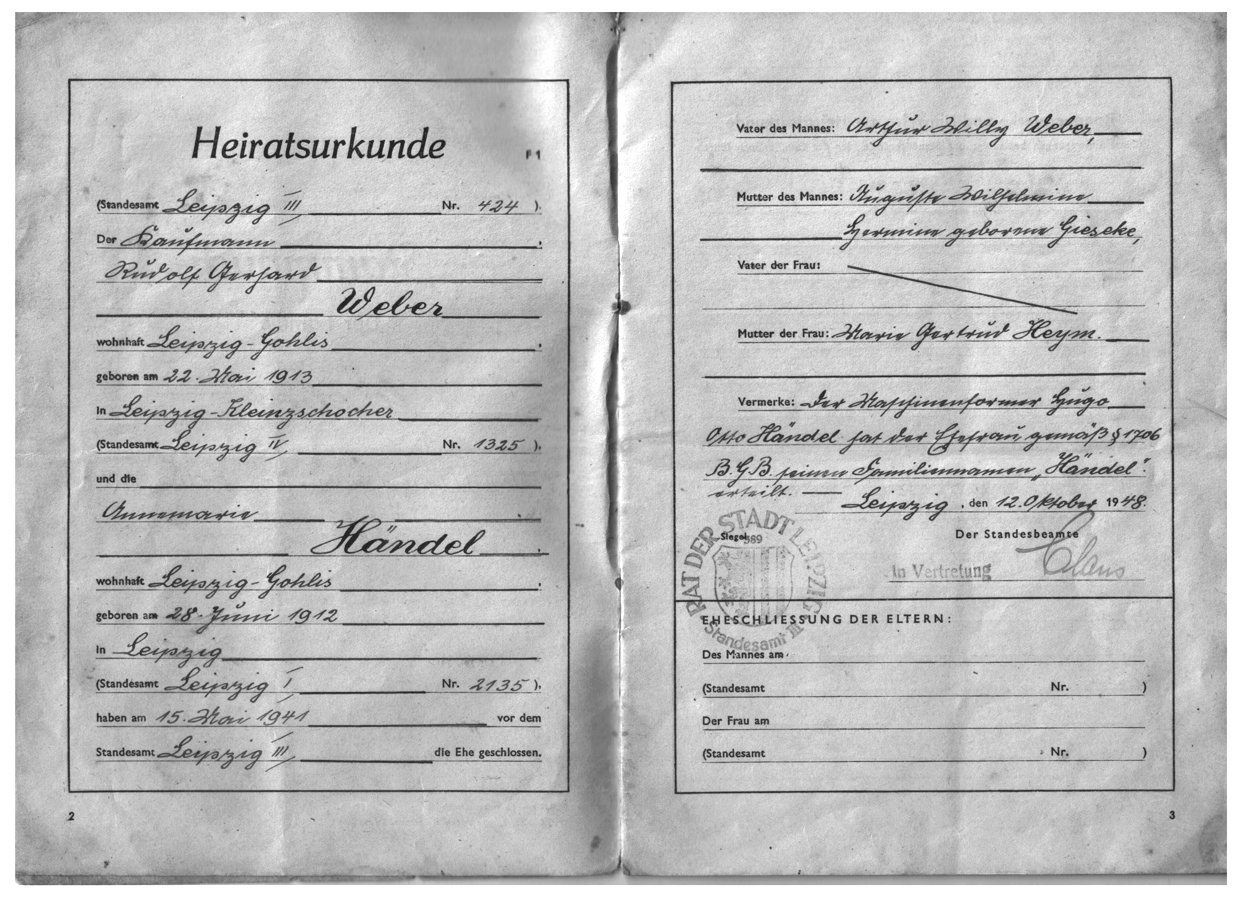 Heiratsurkunde
F 1
(Standesamt Leipzig III Nr. 424 ).
Der Kaufmann ,
Rudolf Gerhard
Weber
wohnhaft Leipzig-Gohlis ,
geboren am 22. Mai 1913
in Leipzig-Kleinzschocher
(Standesamt Leipzig IV Nr. 1325 ).
und die
Annemarie
Händel
wohnhaft Leipzig-Gohlis ,
geboren am 28. Juni 1912
in Leipzig
(Standesamt Leipzig I Nr. 2135 ),
haben am 15. Mai 1941 vor dem
Standesamt Leipzig III die Ehe geschlossen.
2
Vater des Mannes: Arthur Willy Weber,
Mutter des Mannes: Auguste Wilhelmine
Hermine geborene Gieseke,
Vater der Frau:
Mutter der Frau: Marie Gertrud Heym.
Vermerke: Der Maschinenformer Hugo
Otto Händel hat der Ehefrau gemäß § 1706
B.G.B. seinen Familiennamen „Händel“
erteilt. — Leipzig , den 12. Oktober 1948.
Der Standesbeamte
Siegel 389
RAT DER STADT LEIPZIG
Standesamt III
In Vertretung Claus
EHESCHLIESSUNG DER ELTERN:
Des Mannes am
(Standesamt Nr. )
Der Frau am
(Standesamt Nr. )
3